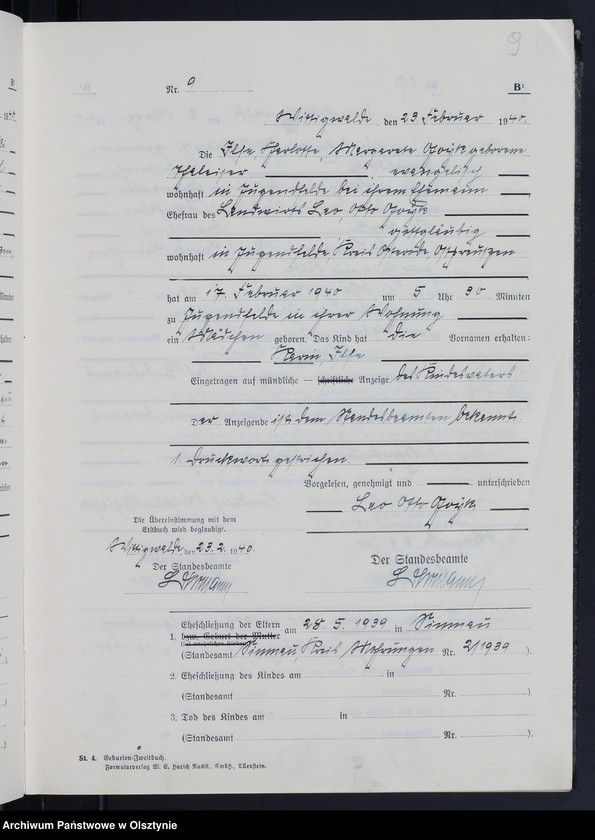 9
Nr. 9 B¹
Wittigwalde, den 23. Februar 1940.
Die Ilse Charlotte, Margarete Gozyk geborene
, evangelisch
wohnhaft in Jugendfelde bei ihrem Ehemann
Ehefrau des Landwirts Leo, Otto Gozyk
, gottgläubig
wohnhaft in Jugendfelde, Kreis Osterode, Ostpreußen
hat am 17. Februar 1940 um 5 Uhr 30 Minuten
zu Jugendfelde in ihrer Wohnung
ein Mädchen geboren. Das Kind hat die Vornamen erhalten:
Karin, Ilse
Eingetragen auf mündliche — schriftliche — Anzeige des Kindesvaters
Der Anzeigende ist dem Standesbeamten bekannt.
1. Druckwort gestrichen.
Vorgelesen, genehmigt und unterschrieben
Leo Otto Gozyk
Die Übereinstimmung mit dem
Erstbuch wird beglaubigt.
Wittigwalde, den 23.2. 1940.
Der Standesbeamte
Der Standesbeamte
1. Eheschließung der Eltern am 28. 5. 1939 in Simnau
bzw. Geburt der Mutter
(Standesamt Simnau, Kreis Mohrungen Nr. 2/1939 ).
2. Eheschließung des Kindes am in
(Standesamt Nr. )
3. Tod des Kindes am in
(Standesamt Nr. )
St. 4. Geburten-Zweitbuch.
Formularverlag W. E. Harich Nachfl., GmbH., Allenstein.
Archiwum Państwowe w Olsztynie